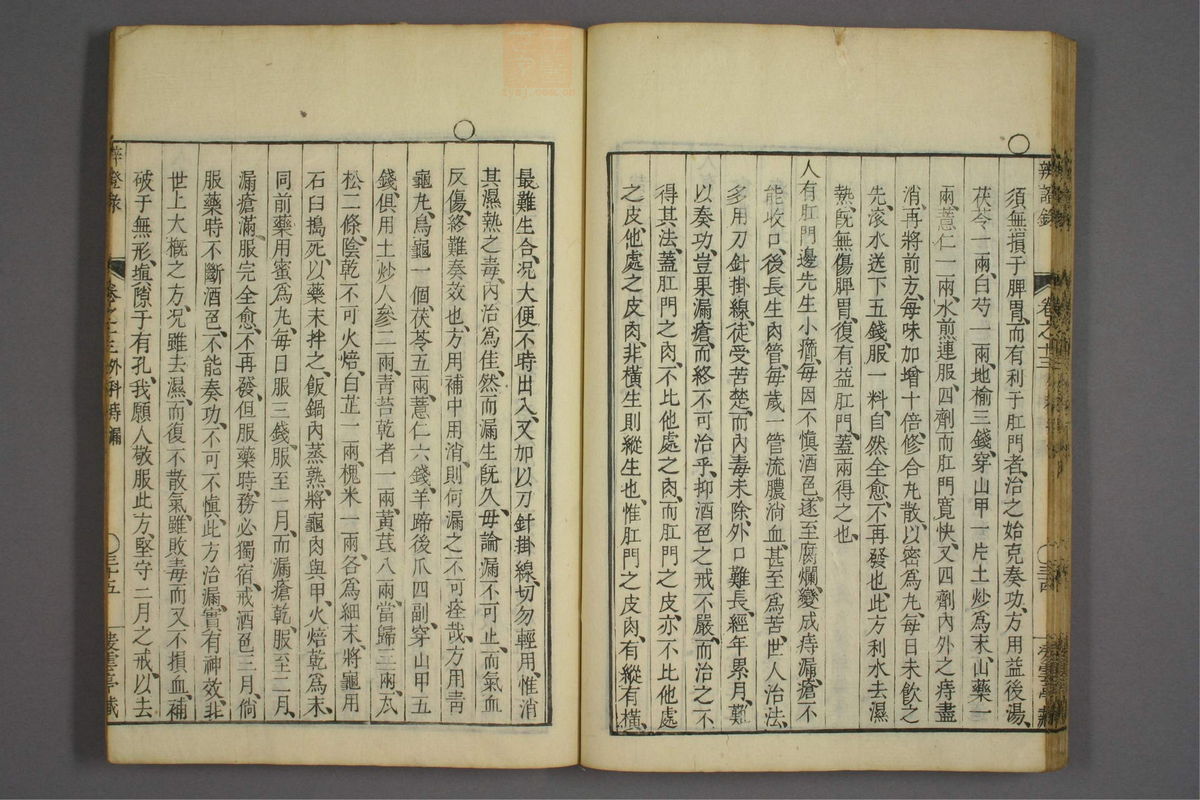 辨證錄 卷之十三 三十四
須無損于脾胃、而有利于肛門者、治之始克奏功、方用益後湯、
茯苓一兩、白芍一兩、地榆三錢、穿山甲一片土炒爲末、山藥一
兩、薏仁一兩、水煎連服、四劑而肛門寛快、又四劑內外之痔盡
消、再將前方、每味加增十倍修合丸散、以密爲丸、每日未飲之
先、滾水送下五錢、服一料自然全愈、不再發也、此方利水去濕
熱、旣無傷脾胃、復有益肛門、蓋兩得之也
人有肛門邊先生小癤、每因不愼酒色、遂至腐爛變成痔漏、瘡不
能收口、後長生肉管、每歲一管流膿淌血、甚至爲苦、世人治法、
多用刀針掛線、徒受苦楚、而內毒未除、外口難長、經年累月、難
以奏功、豈果漏瘡而終不可治乎、抑酒色之戒不嚴、而治之不
得其法、蓋肛門之肉、不比他處之肉、而肛門之皮、亦不比他處
之皮、他處之皮肉、非橫生則縱生也、惟肛門之皮肉、有縱有橫、
最難生合、况大便不時出入、又加以刀針掛線、切勿輕用、惟消
其濕熱之毒、內治爲佳、然而漏生旣久、毋論漏不可止、而氣血
反傷、終難奏效也、方用補中用消、則何漏之不可痊哉、方用靑
龜丸、烏龜一個茯苓五兩、薏仁六錢、羊蹄後爪四副、穿山甲五
錢、俱用土炒人參二兩、靑苔乾者一兩、黃芪八兩、當歸三兩、瓜
松二條、陰乾不可火焙、白芷一兩槐米一兩、各爲細末、將龜用
石臼搗死、以藥末拌之、飯鍋內蒸熟、將龜肉與甲、火焙乾爲末、
同前藥用蜜爲丸、每日服三錢、服至一月、而漏瘡乾、服至二月、
漏瘡滿、服完全愈、不再發、但服藥時、務必獨宿、戒酒色三月、倘
服藥時不斷酒色、不能奏功、不可不愼、此方治漏、實有神效、非
世上大概之方、况雖去濕、而復不散氣、雖敗毒而又不損血、補
破于無形、塡隙于有孔、我願人敬服此方、堅守二月之戒、以去
卷之十三外科痔漏 三十五